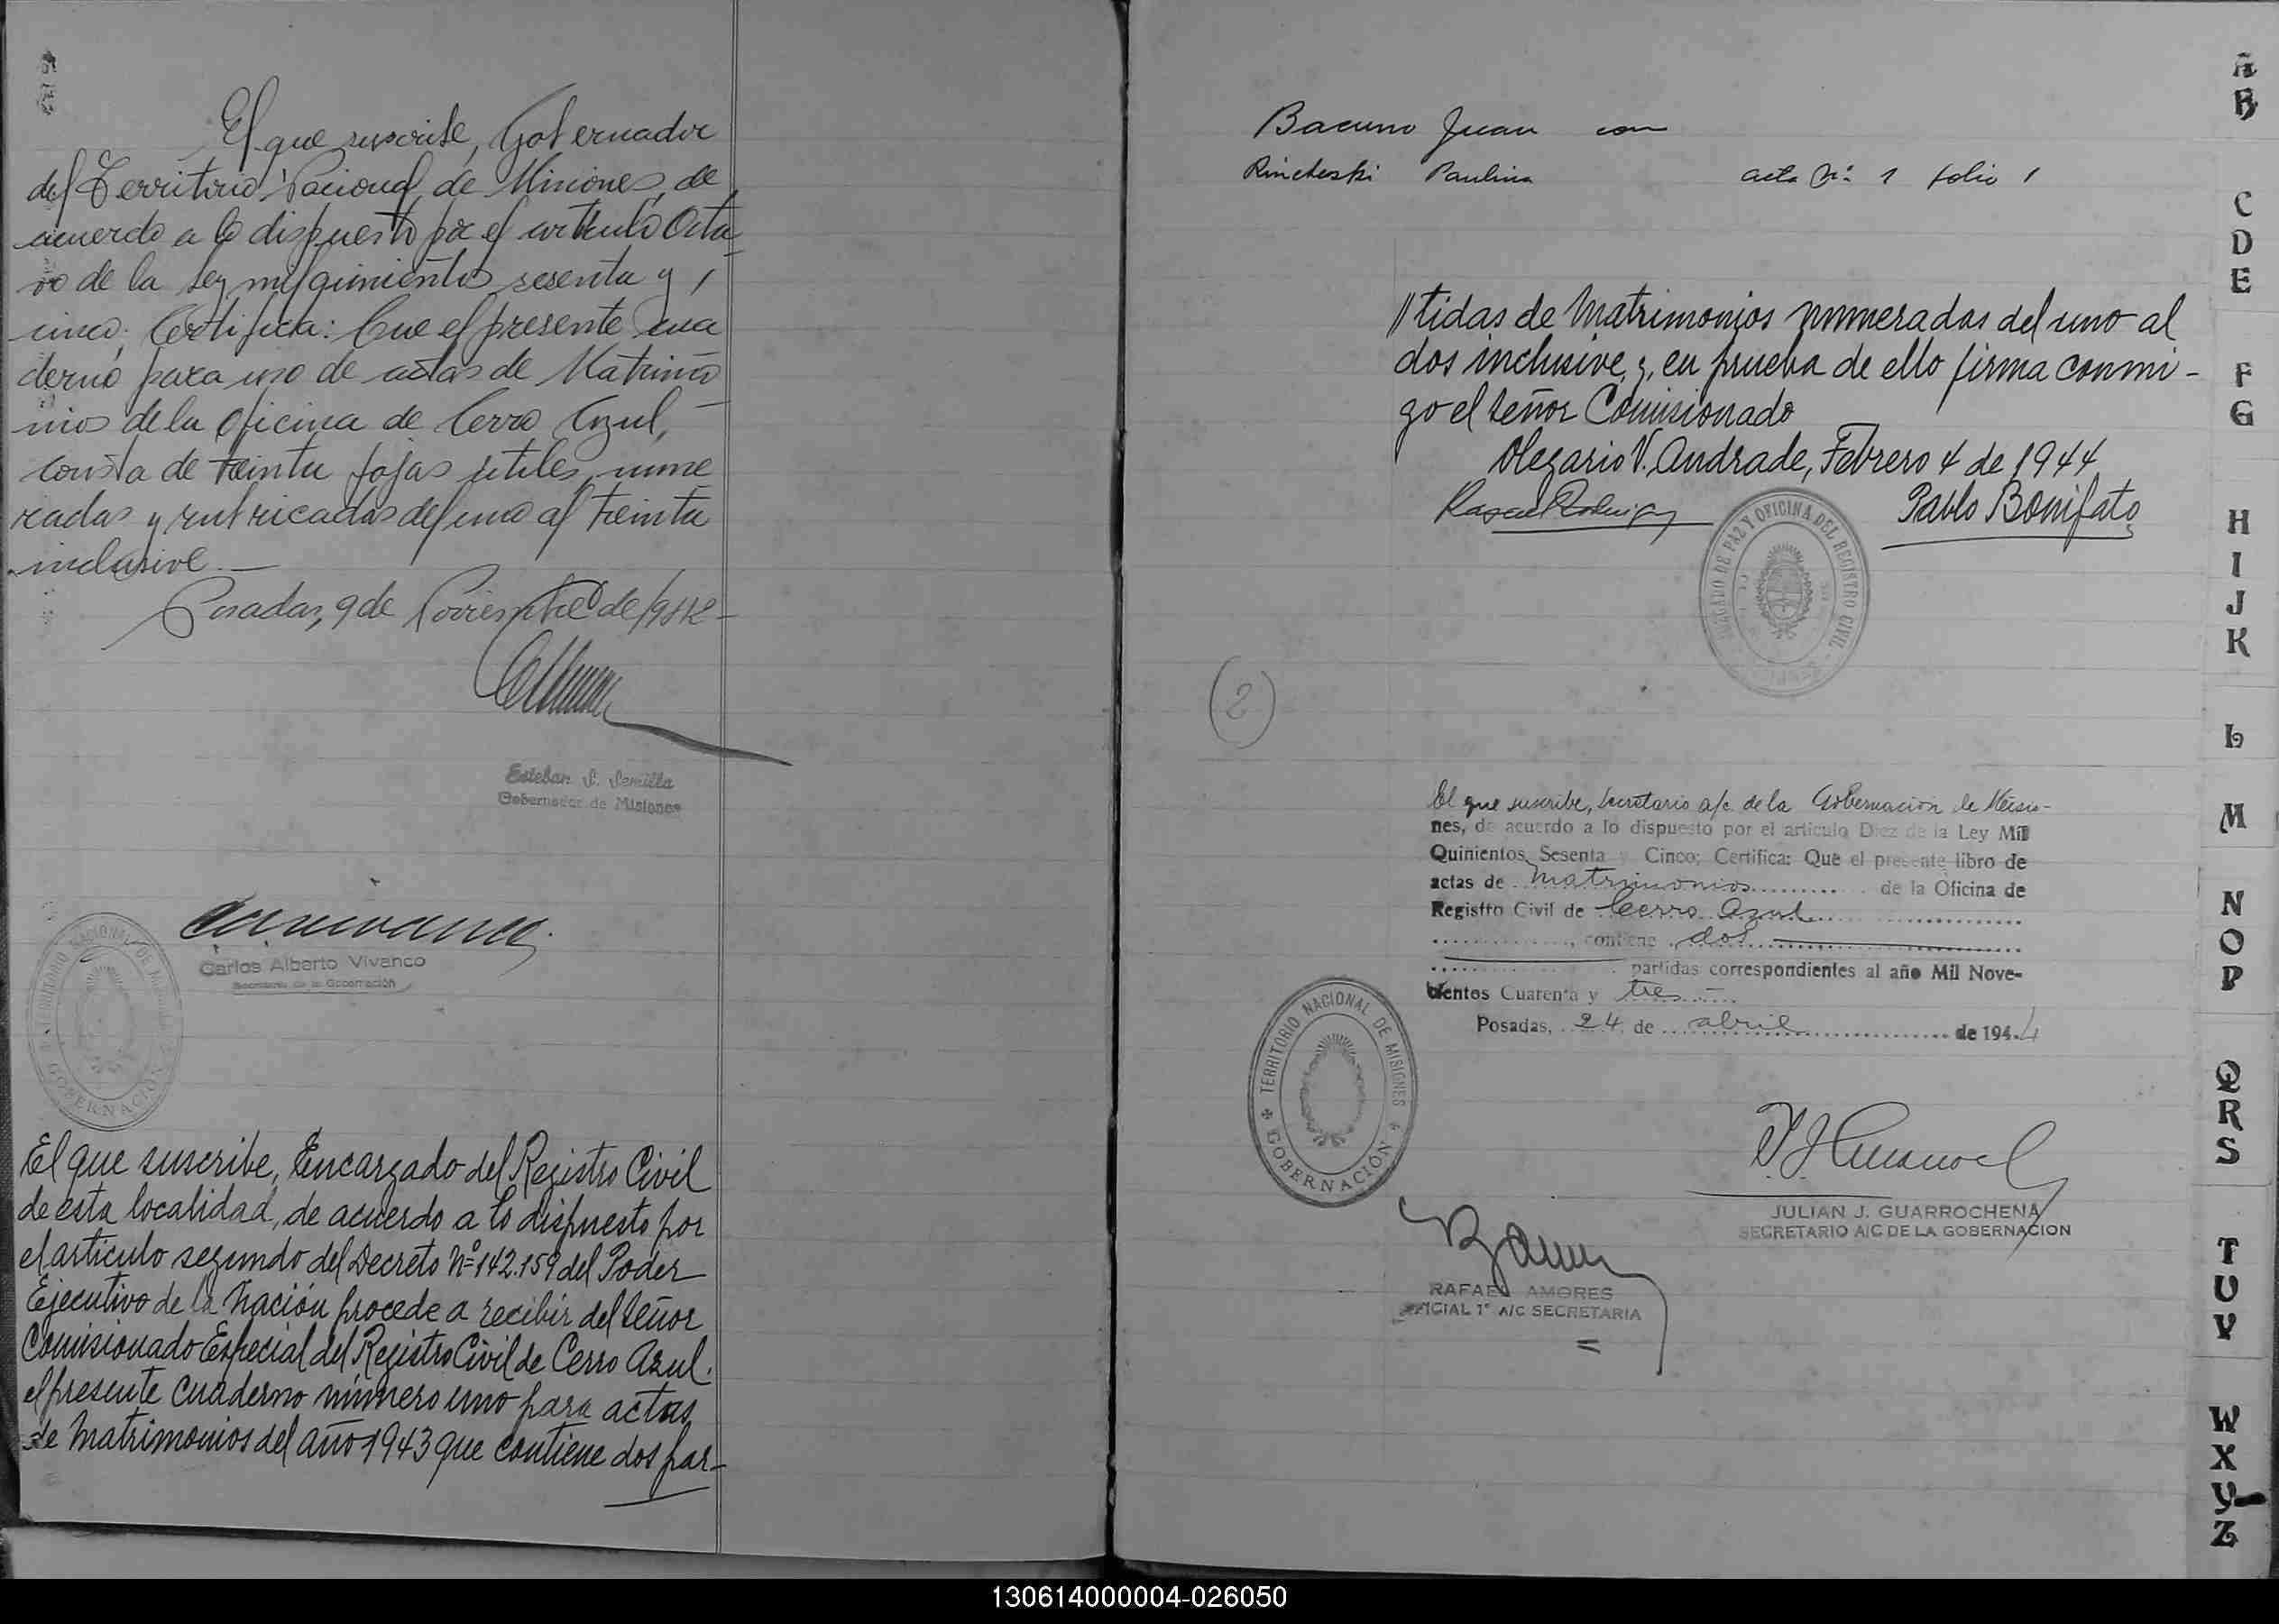 El que suscribe, Gobernador
del Territorio Nacional de Misiones, de
acuerdo a lo dispuesto por el artículo Octa-
vo de la Ley mil quinientos sesenta y
cinco; Certifica: Que el presente cua
derno para uso de actas de Matrimo
nios de la Oficina de Cerro Azul,
consta de treinta fojas útiles nume
radas y rubricadas del uno al treinta
inclusive.—
Posadas, 9 de Noviembre de 1942-
Esteban S. Semilla
Gobernador de Misiones
Carlos Alberto Vivanco
Secretario de la Gobernación
TERRITORIO NACIONAL DE MISIONES
GOBERNACIÓN
El que suscribe, Encargado del Registro Civil
de esta localidad, de acuerdo a lo dispuesto por
el artículo segundo del Decreto Nº 142.159 del Poder
Ejecutivo de la Nación procede a recibir del señor
Comisionado Especial del Registro Civil de Cerro Azul.
el presente cuaderno número uno para actas
de Matrimonios del año 1943 que contiene dos par-
Bacuno Juan con
Rincheski Paulina acta Nº 1 folio 1
//tidas de Matrimonios numeradas del uno al
dos inclusive, y, en prueba de ello firma conmi-
go el señor Comisionado
Olegario V. Andrade, Febrero 4 de 1944
Pablo Bonifato
JUZGADO DE PAZ Y OFICINA DEL REGISTRO CIVIL
(2)
El que suscribe, Secretario a/c de la Gobernación de Misio-
nes, de acuerdo a lo dispuesto por el artículo Diez de la Ley Mil
Quinientos Sesenta y Cinco; Certifica: Que el presente libro de
actas de Matrimonios de la Oficina de
Registro Civil de Cerro Azul
, contiene dos
partidas correspondientes al año Mil Nove-
cientos Cuarenta y tres
Posadas, 24 de abril de 1944
TERRITORIO NACIONAL DE MISIONES
GOBERNACIÓN
JULIAN J. GUARROCHENA
SECRETARIO A/C DE LA GOBERNACION
RAFAEL AMORES
OFICIAL 1° A/C SECRETARIA
A
B
C
D
E
F
G
H
I
J
K
L
M
N
O
P
Q
R
S
T
U
V
W
X
Y
Z
130614000004-026050